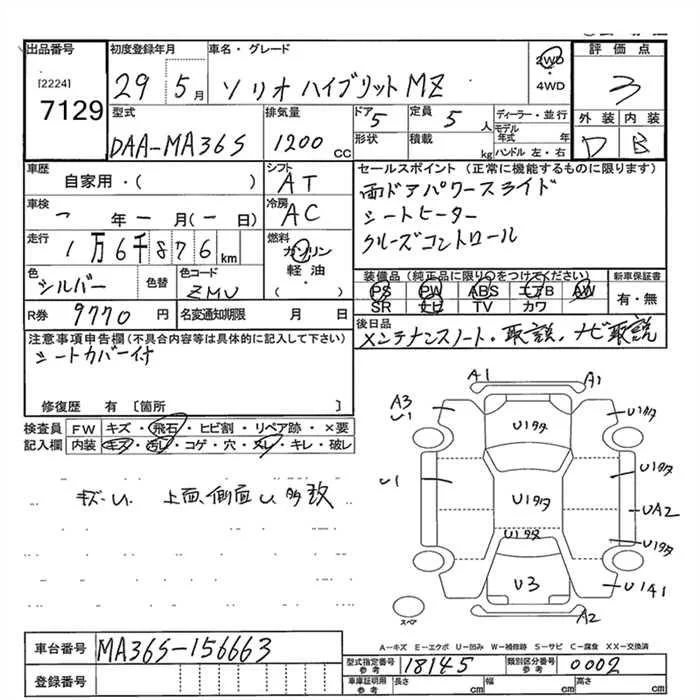 出品番号
[2224]
7129
初度登録年月
29 5月
車名・グレード
ソリオハイブリットMZ
2WD
・
4WD
評価点
3
外装 内装
D B
型式
DAA-MA36S
排気量
1200 CC
ドア 5
形状
定員 5 人
積載 kg
ディーラー・並行
モデル年式 年
ハンドル 左・右
車歴
自家用・( )
シフト
AT
セールスポイント (正常に機能するものに限ります)
両ドアパワースライド
シートヒーター
クルーズコントロール
車検
- 年 - 月(-日)
冷房
AC
走行
1万6千876 km
燃料
ガソリン
軽油・
( )
色
シルバー
色替
色コード
ZMU
装備品(純正品に限り○をつけてください)
PS PW ABS エアB AW
SR ナビ TV カワ
新車保証書
有・無
R券 9770 円
名変通知期限 月 日
後日品
メンテナンスノート・取説、ナビ取説
注意事項申告欄(不具合内容等は具体的に記入して下さい)
シートカバー付
修復歴 有 〔箇所 〕
検査員 FW キズ・飛石・ヒビ割・リペア跡・×要
記入欄 内装 キズ・汚レ・コゲ・穴・スレ・キレ・破レ
キズ・U. 上面、側面U多数
A1 A1
A3
U1
U1タタ
U1タタ
U1
U1タタ
U1タタ
UA2
U1タタ
U1タタ
U3
U1A1
A2
スペア
A−キズ E−エクボ U−凹み W−補修跡 S−サビ C−腐食 XX−交換済
車台番号 MA36S-156663
登録番号
型式指定番号 参考 18145
類別区分番号 参考 0002
車庫証明用 参考 長さ cm 幅 cm 高さ cm